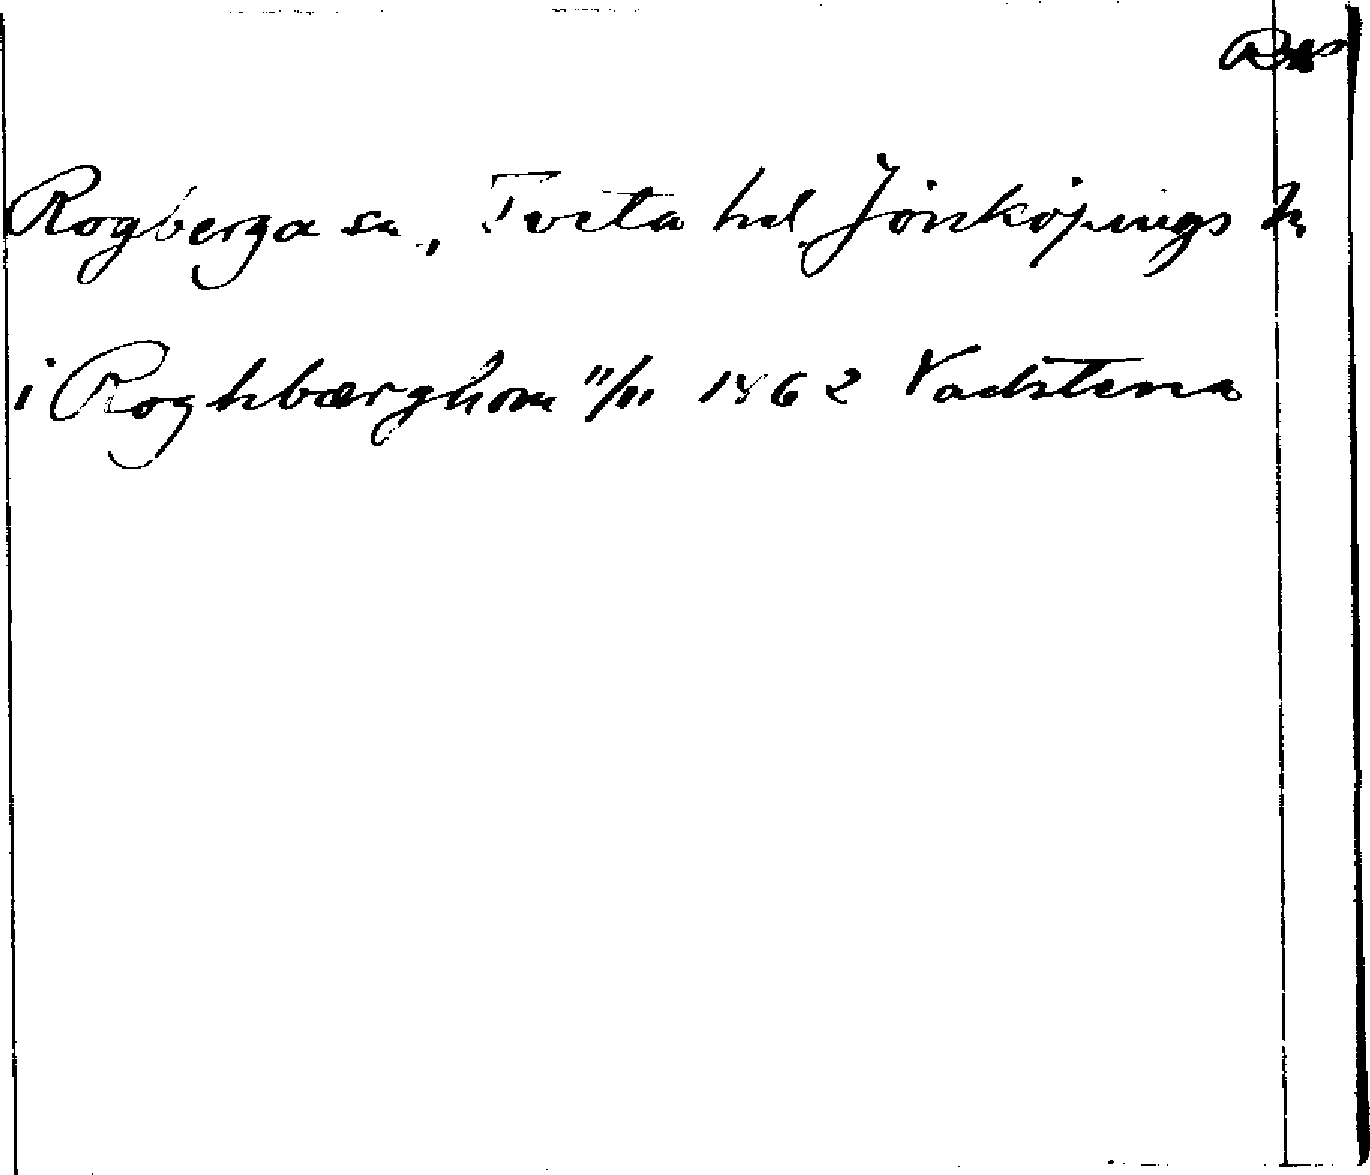 Rogberga sn, Tveta hd, Jönköpings ln
i Roghbærghom 11/11 1462 Vadstena